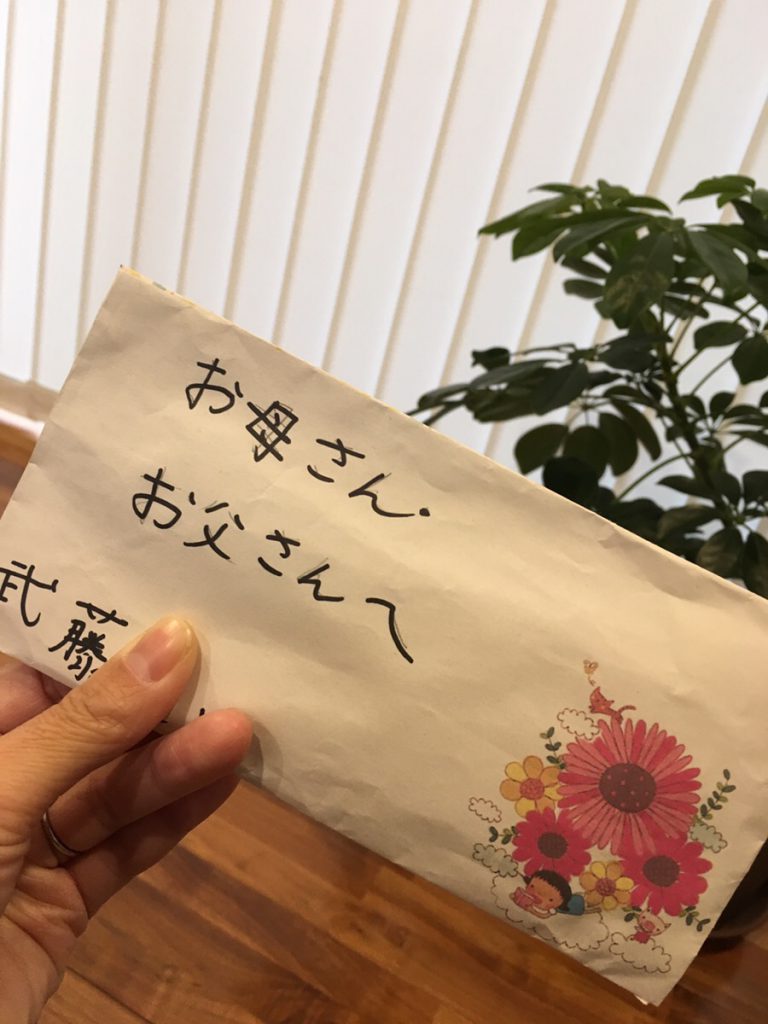 お母さん・
お父さんへ
武藤